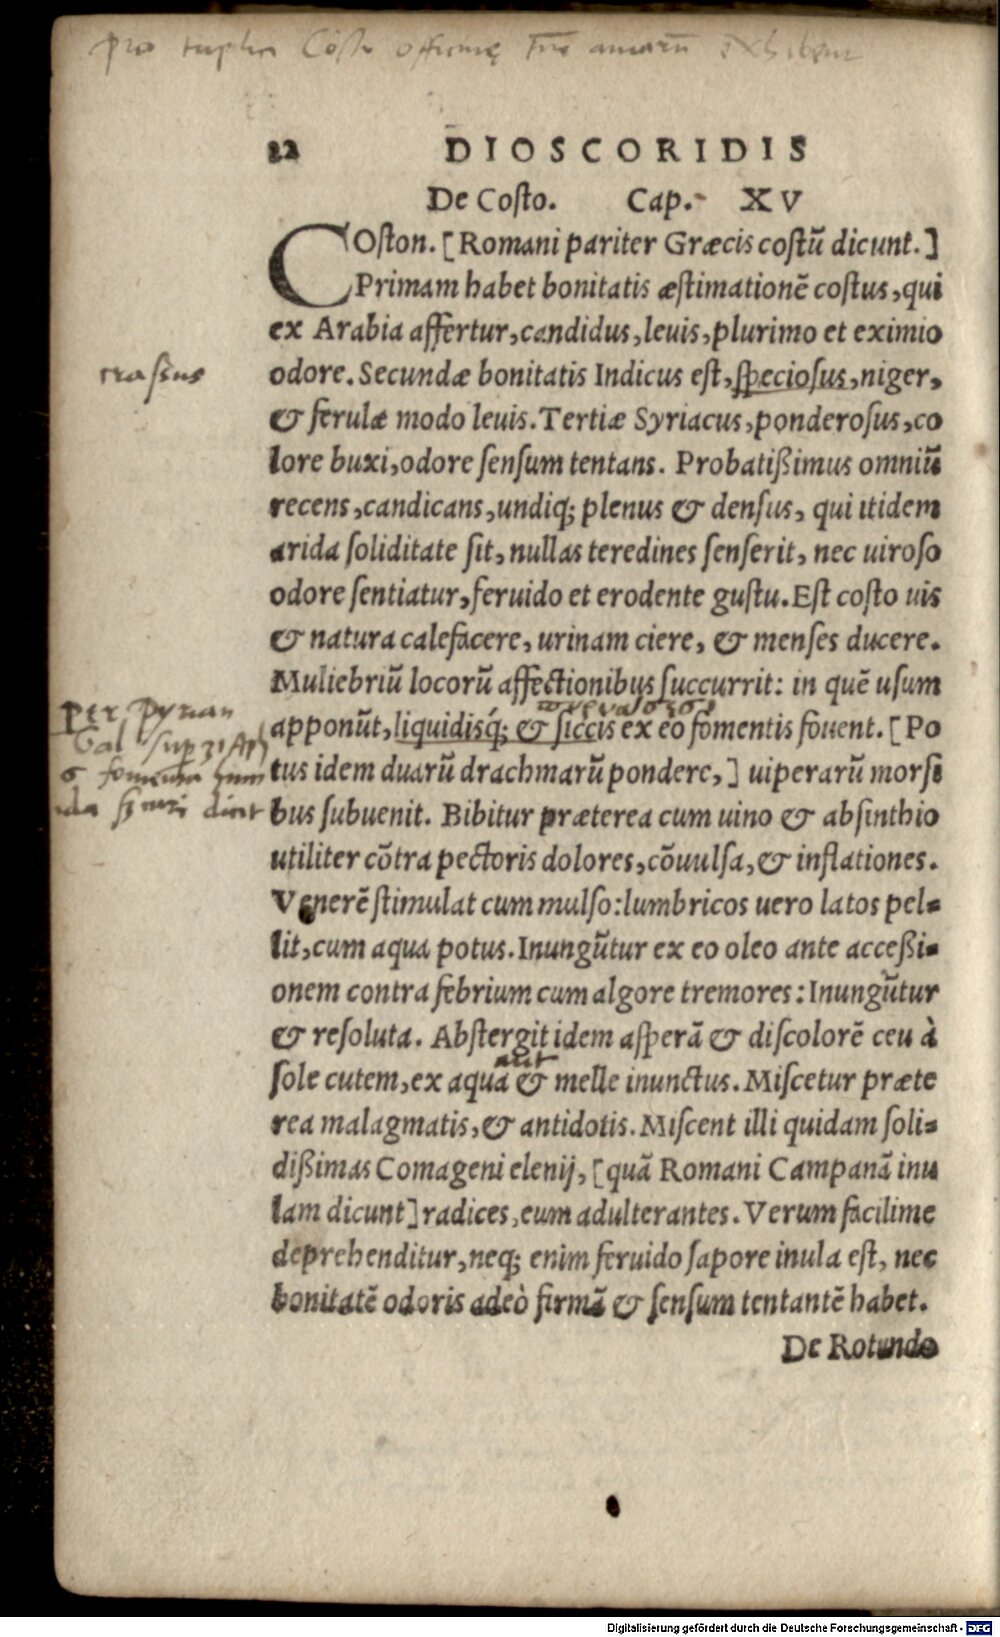 pro Costi officinę amarū exhibent
22 DIOSCORIDIS
De Coſto. Cap. XV
COſton. [Romani pariter Græcis coſtū dicunt.]
Primam habet bonitatis æſtimationē coſtus, qui
ex Arabia affertur, candidus, leuis, plurimo et eximio
odore. Secundæ bonitatis Indicus eſt, ſpecioſus, niger,
craſſus
& ferulæ modo leuis. Tertiæ Syriacus, ponderoſus, co
lore buxi, odore ſenſum tentans. Probatißimus omniū
recens, candicans, undiq; plenus & denſus, qui itidem
arida ſoliditate ſit, nullas teredines ſenſerit, nec uiroſo
odore ſentiatur, feruido et erodente guſtu. Eſt coſto uis
& natura calefacere, urinam ciere, & menſes ducere.
Muliebriū locorū affectionibus ſuccurrit: in quē uſum
apponūt, liquidisq́; & ſiccis ex eo fomentis fouent. [Po
per pyrian
Gal
fomenta
dicit
tus idem duarū drachmarū pondere,] uiperarū morſi
bus ſubuenit. Bibitur præterea cum uino & abſinthio
utiliter cōtra pectoris dolores, cōuulſa, & inflationes.
Venerē ſtimulat cum mulſo: lumbricos uero latos pel=
lit, cum aqua potus. Inungūtur ex eo oleo ante acceßi=
onem contra febrium cum algore tremores: Inungūtur
& reſoluta. Abſtergit idem aſperā & diſcolorē ceu à
aut
ſole cutem, ex aqua & melle inunctus. Miſcetur præte
rea malagmatis, & antidotis. Miſcent illi quidam ſoli=
dißimas Comageni elenij, [quā Romani Campanā inu
lam dicunt] radices, eum adulterantes. Verum facilime
deprehenditur, neq; enim feruido ſapore inula eſt, nec
bonitatē odoris adeò firmā & ſenſum tentantē habet.
De Rotundo
Digitalisierung gefördert durch die Deutsche Forschungsgemeinschaft - DFG